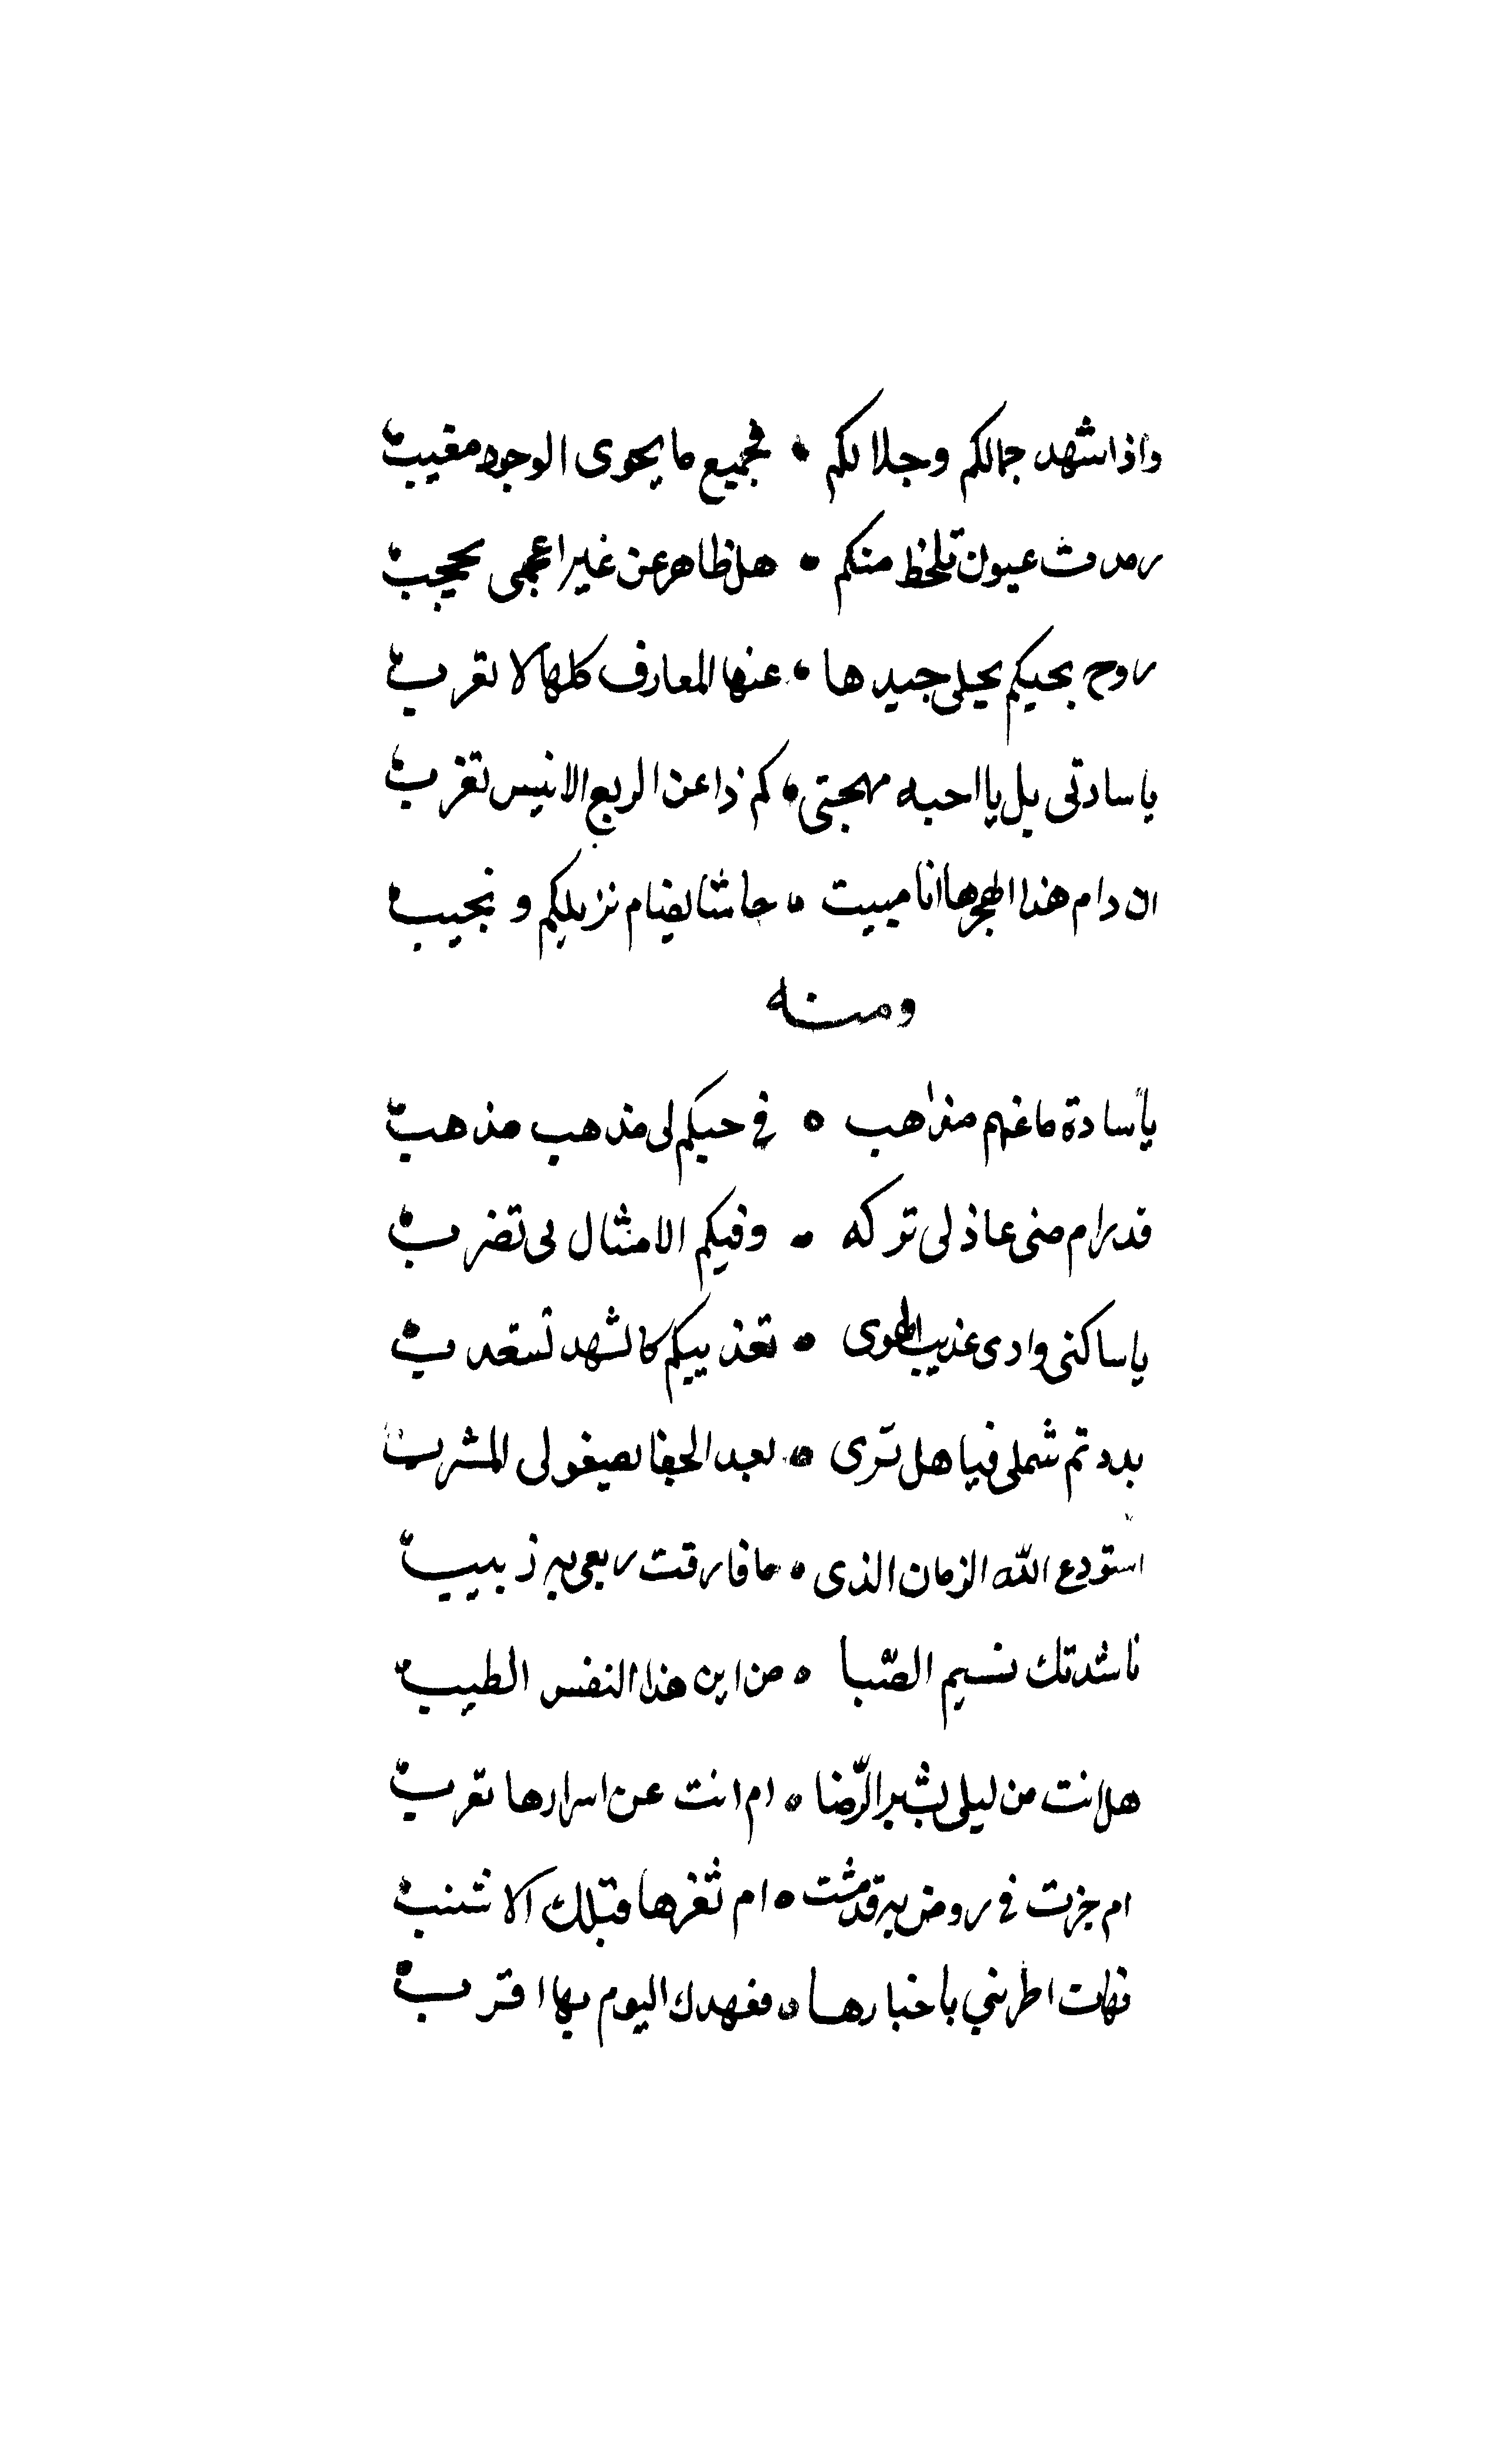 واذا شهد جمالكم وجلالكم • فجميع ما يحوى الوجود مغيب
رمدت عيون تلحظ منكم • هل ظاهر عن غير اعمى يحجب
روح بحيكم يحلى جيدها • عنها المعارف كلها لا تعرب
يا سادتى بل يا احبه مهجتى • كم ذا عن الربع الانيس تغرب
ان دام هذا الهجر ها انا ميت • حاشا يضام نزيلكم ونجيب
ومنه
يا سادة ما عنهم مذاهب • في حبكم لى مذهب مذهب
قد رام منى عاذلى تركه • وفيكم الامثال لى تضرب
يا ساكنى وادى عذيب الهوى • تعذيبكم كالشهد تستعذب
بددتم شملى فيا هل ترى • بعد الجفا يصفو لى المشرب
استودع الله الزمان الذى • ما فارقت ربعى به زينب
ناشدتك نسيم الصّبا • من اين هذا النفس الطيب
هل انت من ليلى بشير الرّضا • ام انت عن اسرارها تعرب
ام جزت في روض به قد مشت • ام ثغرها قبلك الاشنب
فهات اطربني باخبارها • فعهدك اليوم بها اقرب